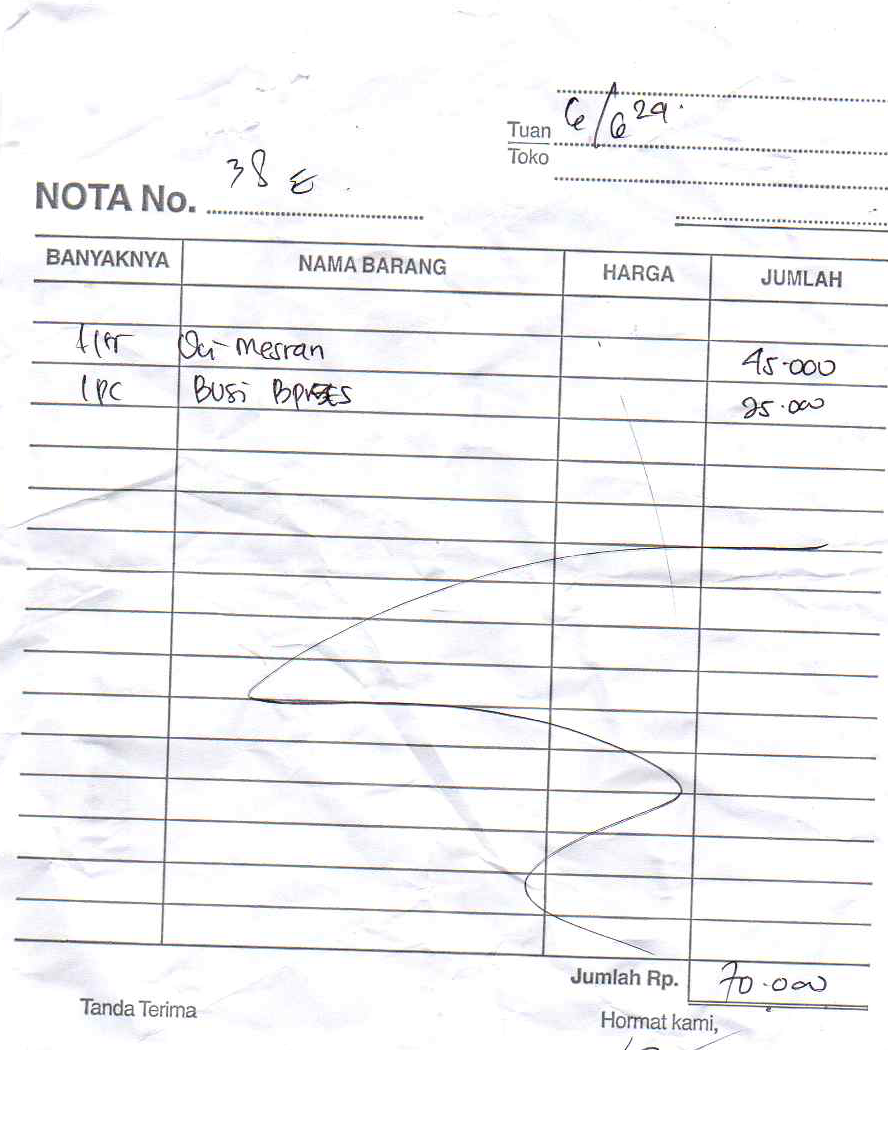 6/6 24
Tuan
Toko
NOTA No. 38 E
BANYAKNYA NAMA BARANG HARGA JUMLAH
1 ltr Oli Mesran 45.000
1 PC Busi 25.000
Jumlah Rp. 70.000
Tanda Terima
Hormat kami,